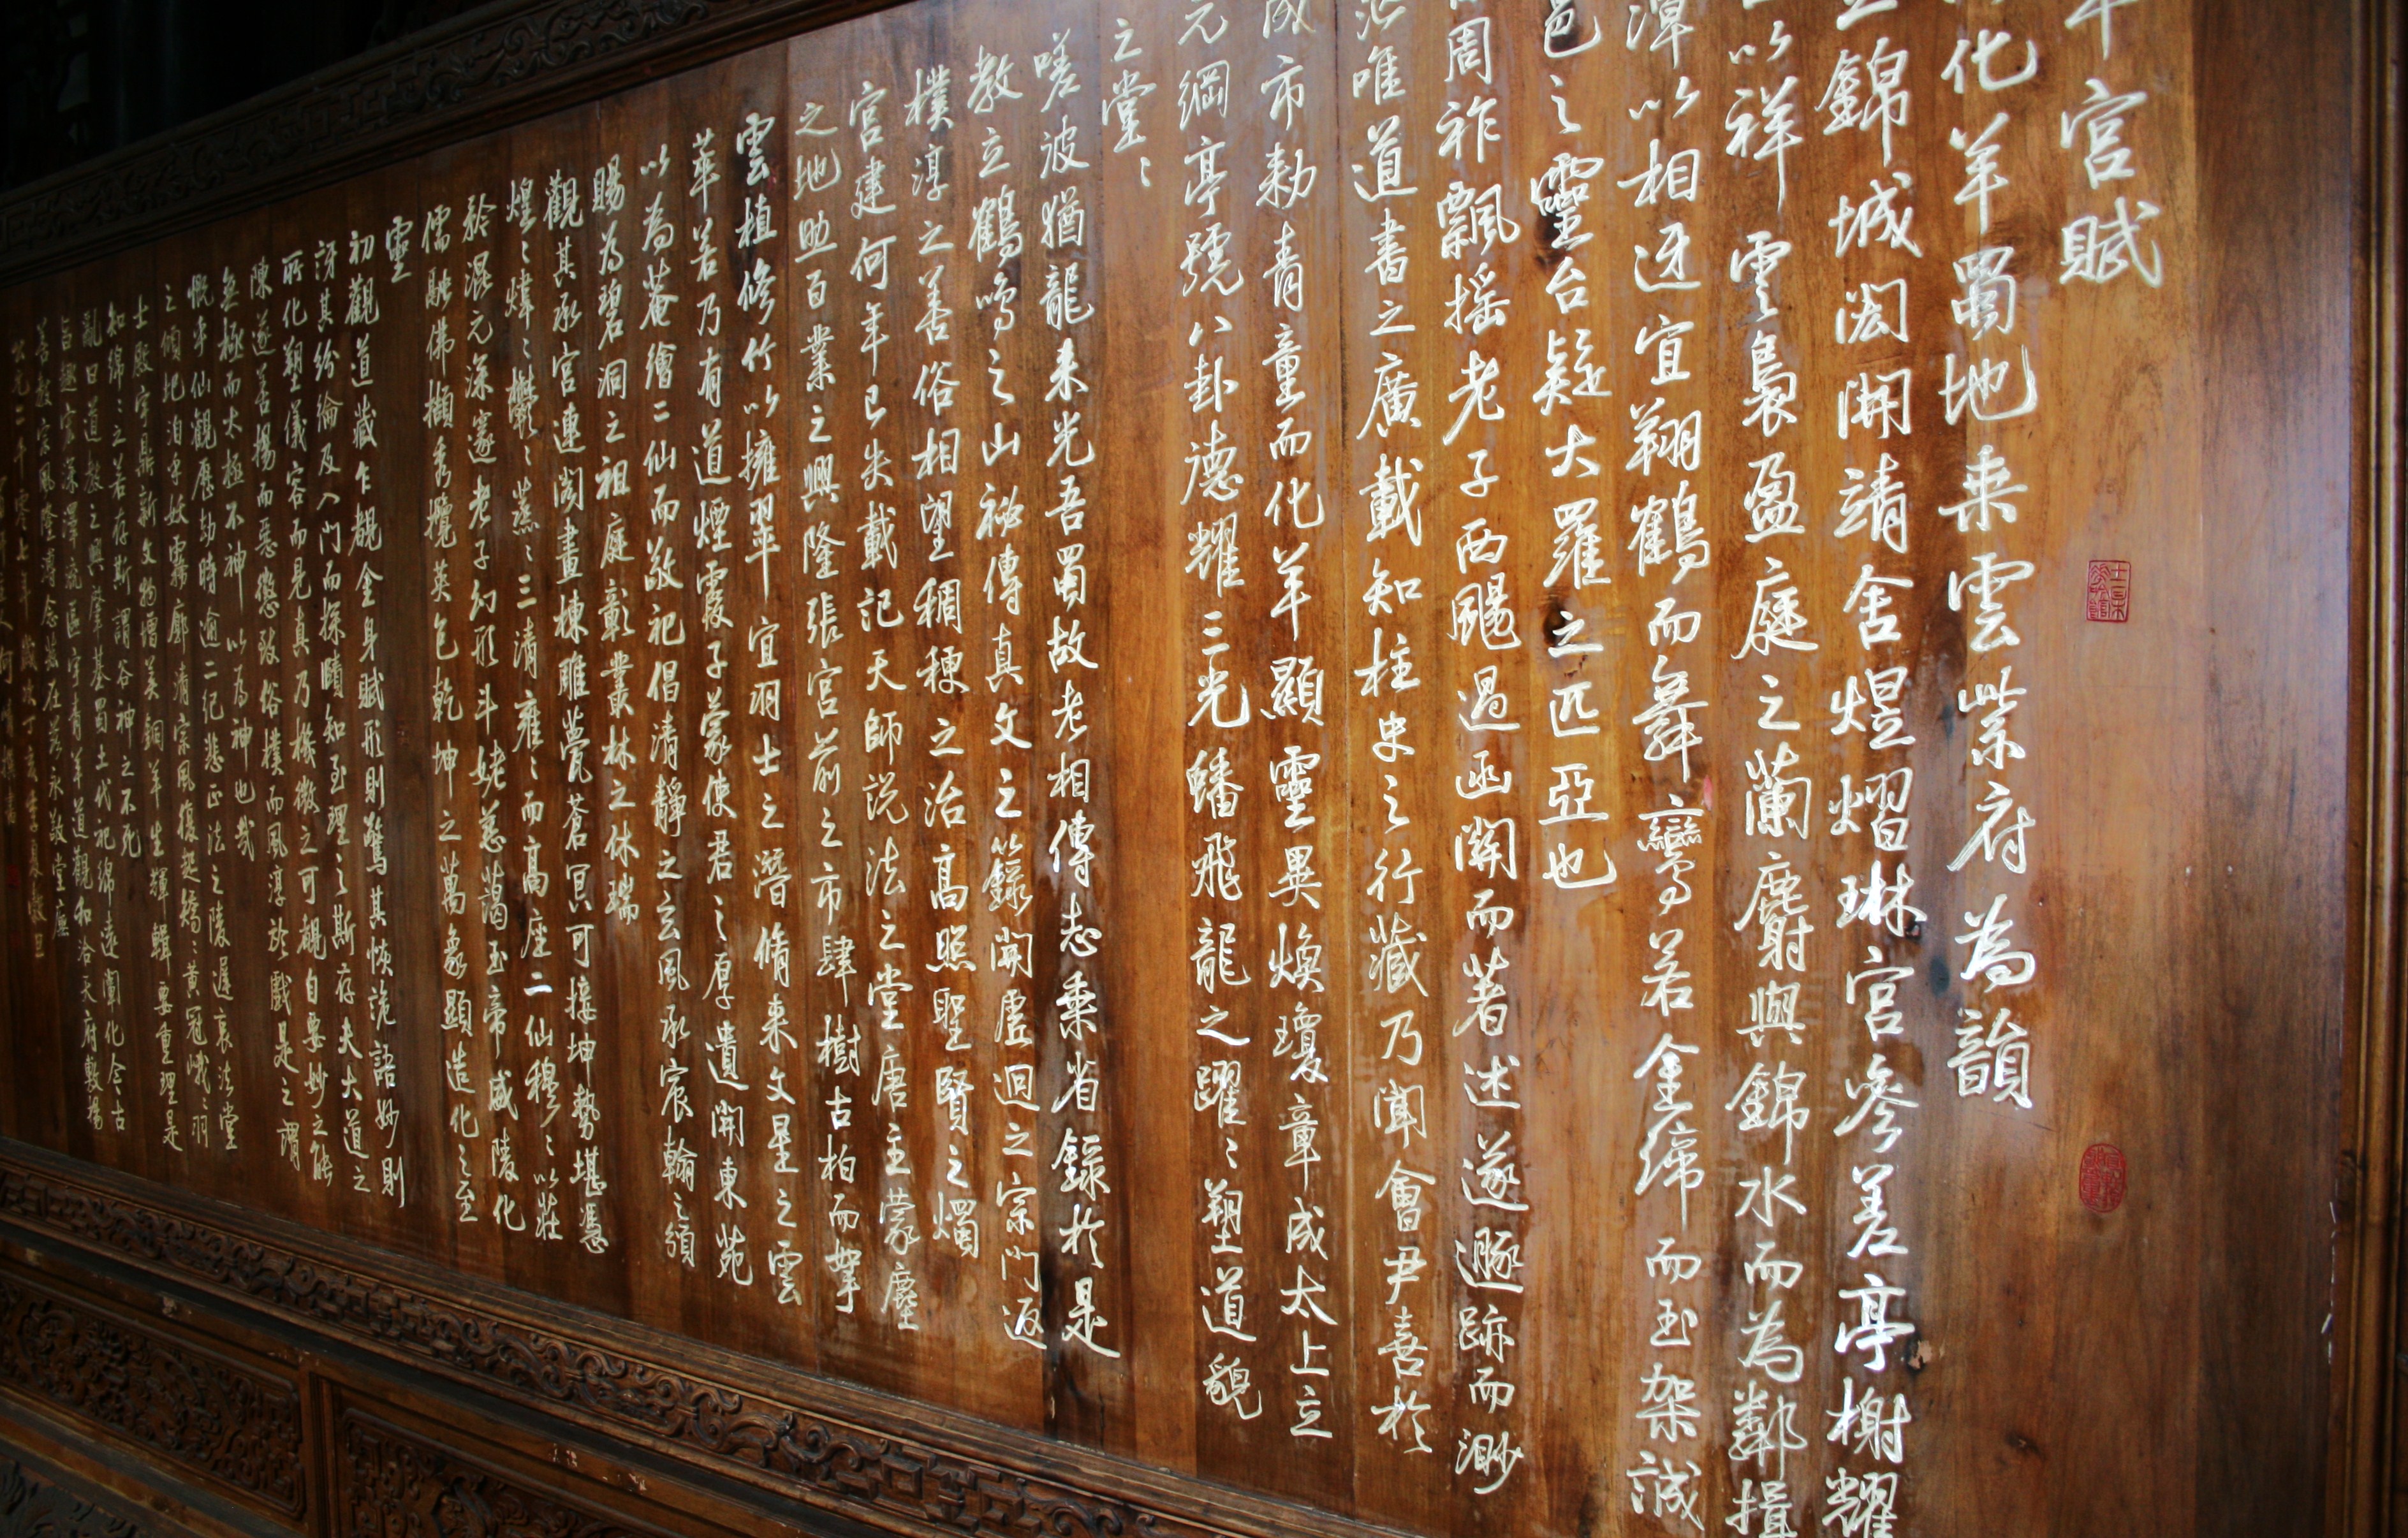 羊宮賦
化羊蜀地乘雲紫府為韻
錦城闳開靖舍煜熠琳宮參差亭榭耀
以祥雲裊盈庭之蘭麝與錦水而為鄰揖
潭以相迓宜翔鶴而舞鸞若金繂而玉架誠
邑之靈台疑大羅之匹亞也
周祚飄搖老子西颺過函關而著述遂遯跡而渺
茫唯道書之廣載知柱史之行藏乃聞會尹喜於
成市敕青童而化羊顯靈異煥瓊章成太上立
元綱亭號八卦德耀三光蟠飛龍之躍〻塑道貌
之堂〻
嗟彼猶龍來光吾蜀故老相傳志乘省錄於是
教立鶴鳴之山祕傳真文之籙開盧迥之宗門返
樸淳之善俗相望稠稉之治高照聖賢之燭
宮建何年已失載記天師說法之堂唐主蒙塵
之地助百業之興隆張宮前之市肆樹古柏而拏
雲植修竹以擁翠宜羽士之潛脩來文星之雲
華若乃有道煙霞子蒙使君之厚遺開東苑
以為菴繪二仙而敬祀倡清靜之玄風承宸翰之頒
賜為碧洞之祖庭彰叢林之休瑞
觀其承宮連閣畫棟雕甍蒼冥可接坤勢堪憑
煌〻煒〻鬱〻蒸〻三清雍〻而高座二仙穆〻以莊
矜混元深邃老子幻形斗姥慈藹玉帝威陵化
儒融佛擷秀攬英包乾坤之萬象顯造化之至
靈
初觀道藏乍覩金身賦形則驚其恢詭語妙則
訝其紛綸及入門而探賾知至理之斯存夫大道之
所化塑儀容而見真乃機微之可觀自要妙之能
陳遂善揚而惡懲改俗樸而風淳於戲是之謂
無極而太極不神以為神也哉
慨乎仙觀歷劫時逾二紀悲正法之陵遲哀法堂
之傾圮泊乎妖霧廓清宗風復起矯〻黃冠峨〻羽
士殿宇鼎新文物增美銅羊生輝輯要重理是
知綿〻之若存斯謂谷神之不死
亂曰道教之興肇基蜀土代祀綿遠闡化今古
旨趣玄深澤流區宇青羊道觀和洽天府敷揚
善教宗風隆溥念茲在茲永敬堂廡
公元二千零七年歲次丁亥季夏穀旦